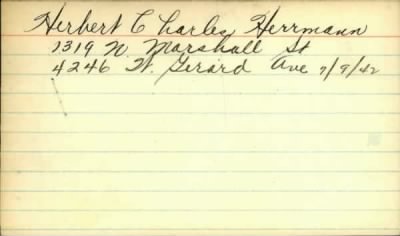 Herbert Charles Herrmann
1319 N. Marshall St
4246 W. Gerard Ave 7/9/42